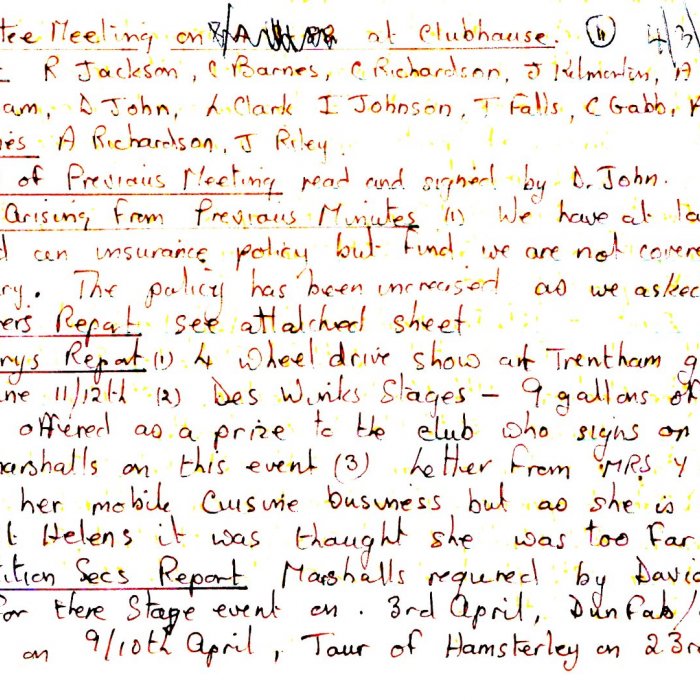 tee Meeting on at Clubhouse. (11) 4/3/
R Jackson, C Barnes, C Richardson, J Kilmartin, A
am, D John, L Clark I Johnson, T Falls, C Gabb,
A Richardson, J Riley.
of Previous Meeting read and signed by D. John.
Arising From Previous Minutes (1) We have at la
d an insurance policy but find we are not covere
ry. The policy has been increased as we asked
ers Repot see attatched sheet
rys Repot (1) 4 wheel drive show at Trentham g
ne 11/12th (2) Des Winks Stages - 9 gallons of
offered as a prize to the club who signs on
arshalls on this event (3) Letter from MRS Y
her mobile Cuisine business but as she is
t Helens it was thought she was too far
tition Secs Report Marshalls required by David
for there Stage event on . 3rd April, Dunfab/
on 9/10th April, Tour of Hamsterley on 23r